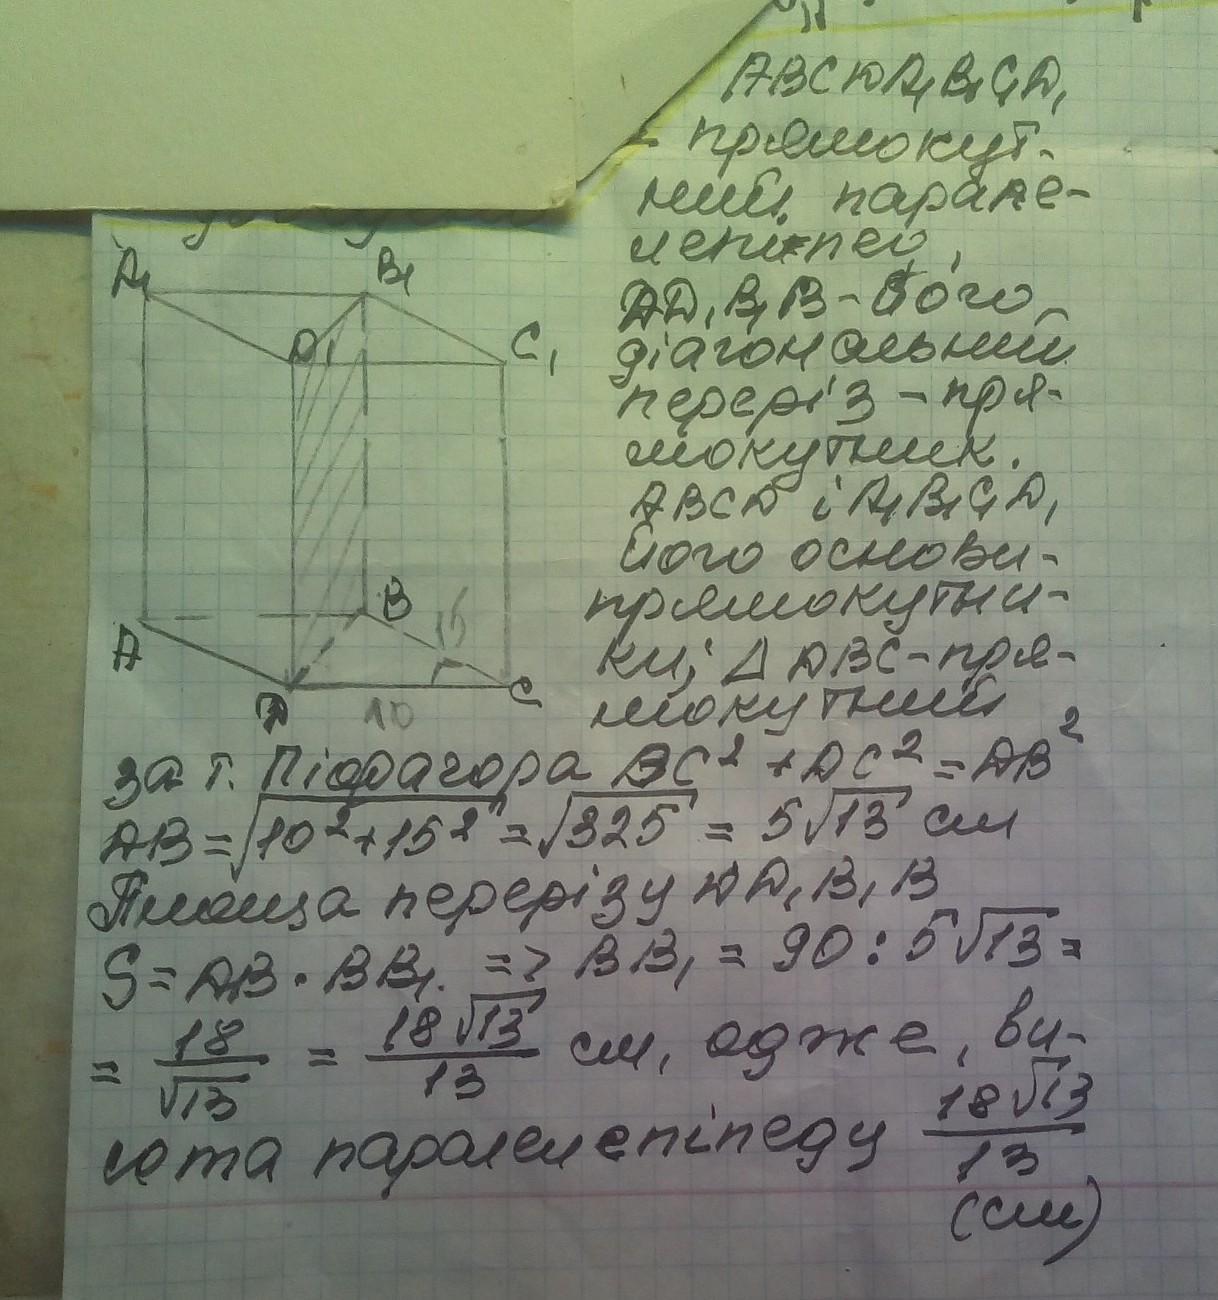 ABCDA₁B₁C₁D₁
- прямокут-
ний парале-
лепіпед,
DD₁B₁B - його
діагональний
переріз - пря-
мокутник.
ABCD і A₁B₁C₁D₁
його основи-
прямокутни-
ки; Δ DBC - пря-
мокутний
A₁
B₁
D₁
C₁
B
15
A
D
10
C
за т. Піфагора BC² + DC² = DB²
DB = √10² + 15² = √325 = 5√13 см
Площа перерізу DD₁B₁B
S = DB · BB₁. => BB₁ = 90 : 5√13 =
= 18/√13 = 18√13/13 см, одже, ви-
сота паралелепіпеду 18√13/13
(см)